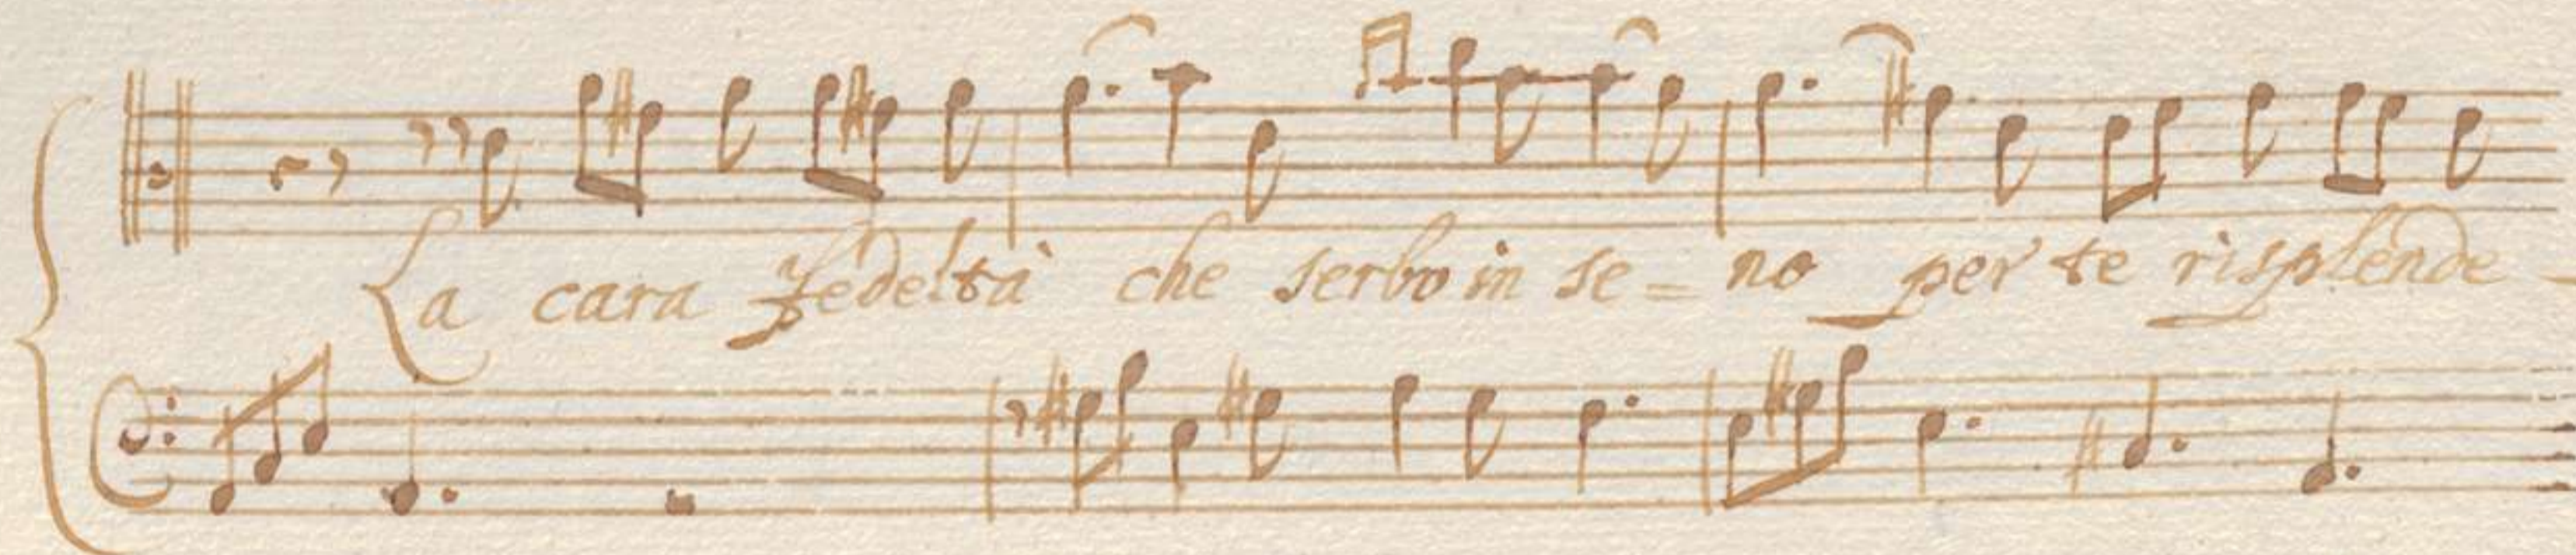 La cara fedeltà che serbo in se = no per te risplende -